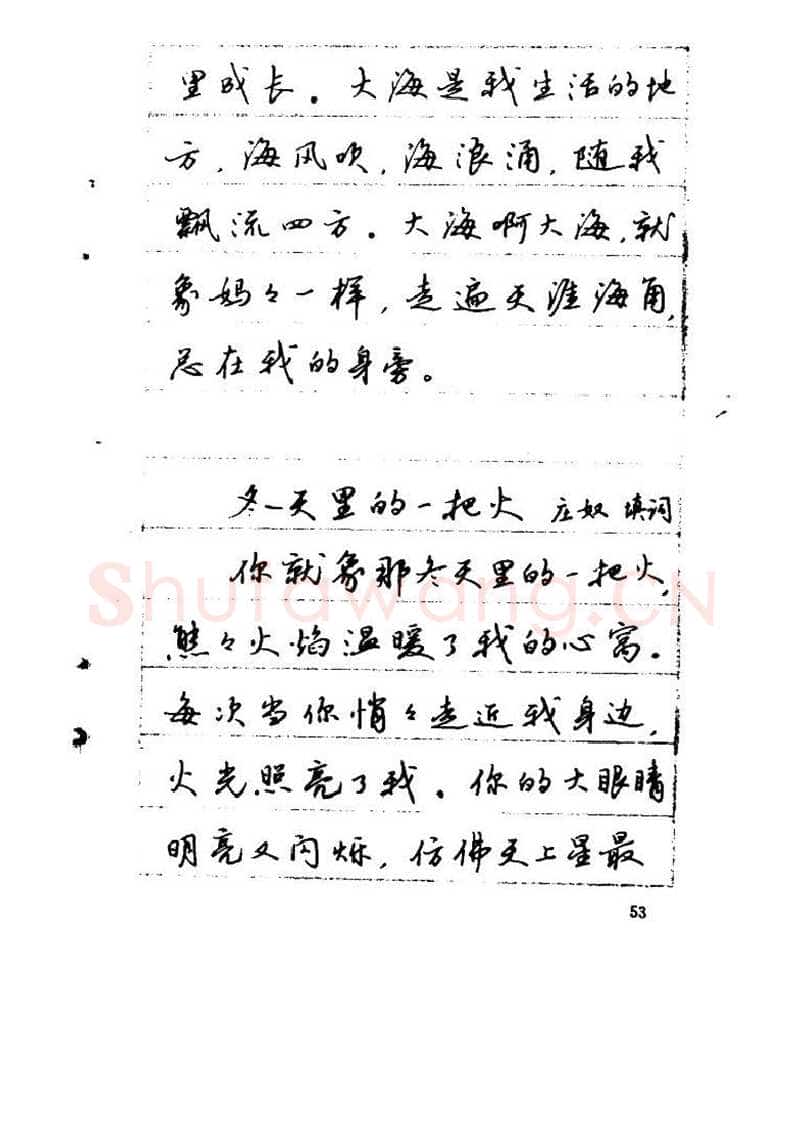 里成长。大海是我生活的地
方,海风吹,海浪涌,随我
飘流四方。大海啊大海,就
象妈々一样,走遍天涯海角,
总在我的身旁。
冬天里的一把火 庄奴 填词
你就象那冬天里的一把火,
熊々火焰温暖了我的心窝。
每次当你悄々走近我身边,
火光照亮了我。你的大眼睛
明亮又闪烁,仿佛天上星最
53
Shufawang.CN